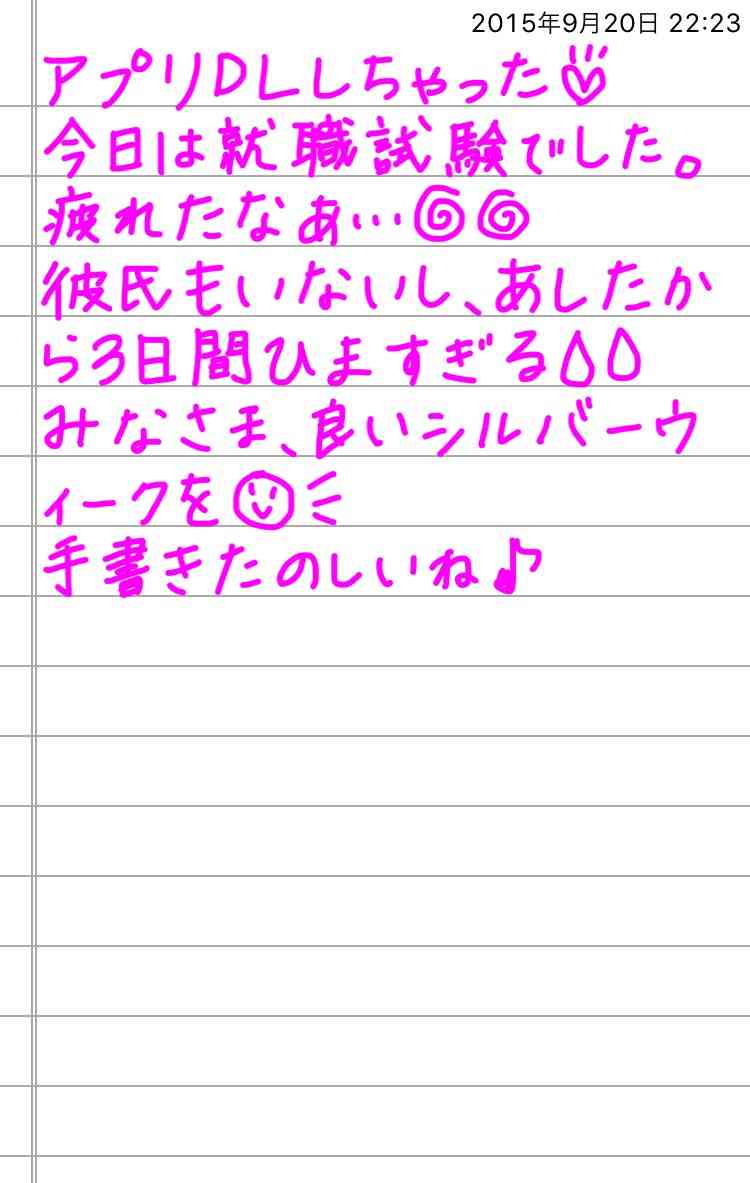 2015年9月20日 22:23
アプリDLしちゃった♡
今日は就職試験でした。
疲れたなぁ…
彼氏もいないし、あしたか
ら3日間ひますぎる
みなさま、良いシルバーウ
ィークを
手書きたのしいね♪